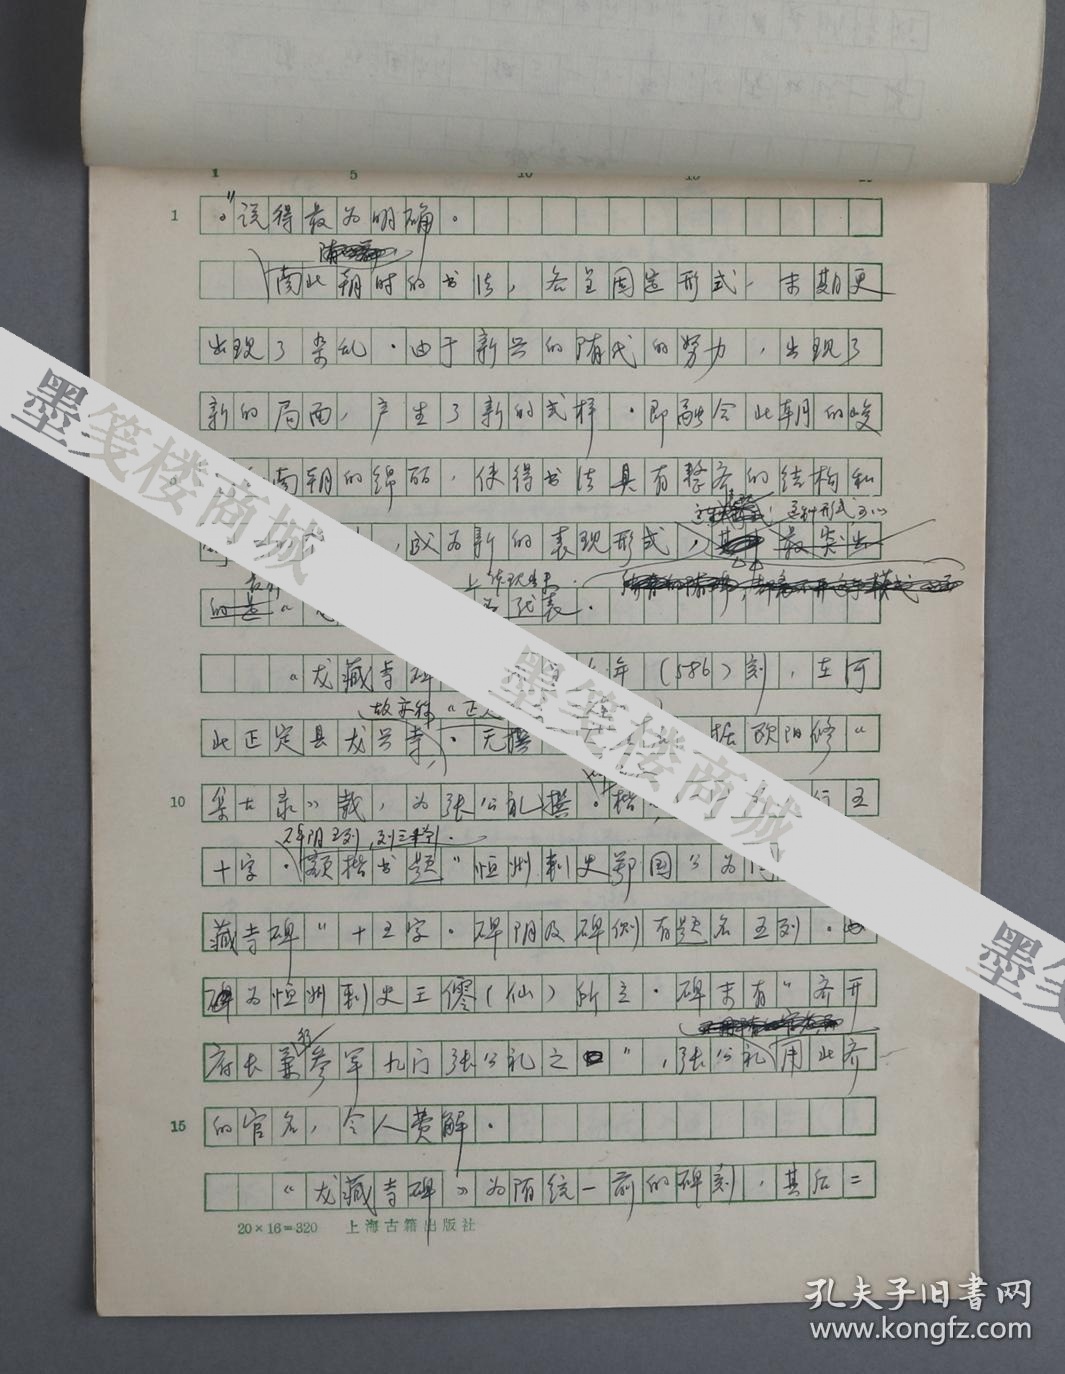 1 5 10
1
。"说得最为明确。
南北朝时的书法，各呈固定形式，末期更
出现了紊乱。由于新兴的隋代的努力，出现了
新的局面，产生了新的式样。即融合北朝的峻
南朝的绵丽，使得书法具有整齐的结构和
这种形式
，成为新的表现形式，最突出
上体现出来
的是" 代表。
"龙藏寺碑 年（586）刻，在河
故亦称"正定
北正定县龙兴寺。无撰 据欧阳修"
10
集古录》载，为张公礼撰。楷 行五
碑阴五列，
十字。额楷书题"恒州刺史鄂国公为
藏寺碑"十五字。碑阴及碑侧有题名五列。此
碑为恒州刺史王僊（仙）所立。碑末有"齐开
府长兼参军九门张公礼之 "，张公礼用北齐
15
的官名，令人费解。
"龙藏寺碑》为隋统一前的碑刻，其后二
20×16=320 上海古籍出版社
墨笺楼商城
墨笺楼商城
墨笺
孔夫子旧书网
www.kongfz.com